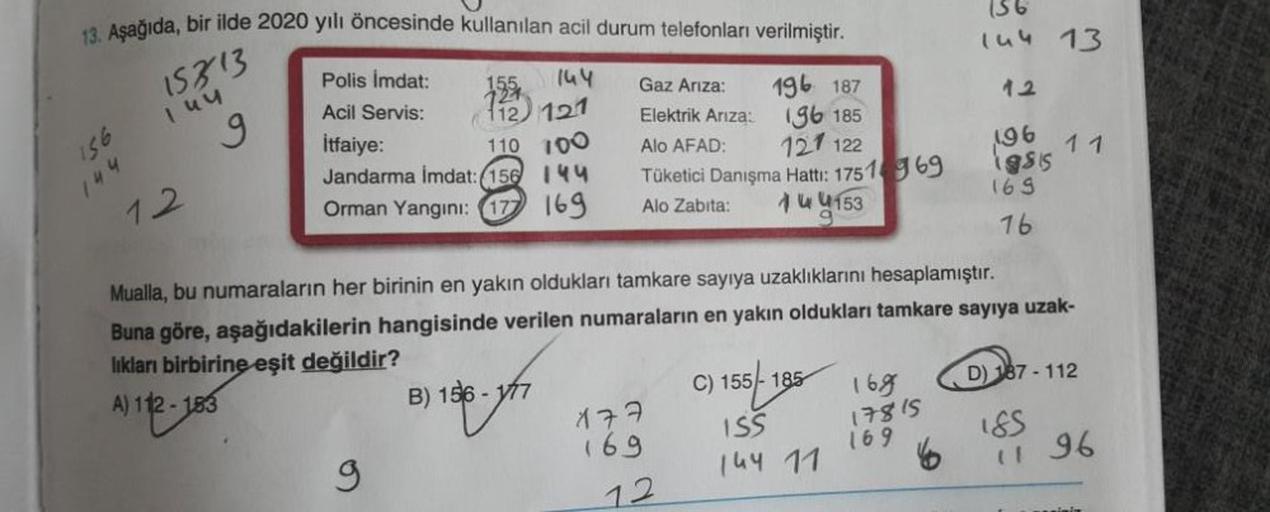 13. Aşağıda, bir ilde 2020 yılı öncesinde kullanılan acil durum telefonları verilmiştir.
156
144 13
12
196
11
169
16
144
9
156
144
12
Polis İmdat: 155 144
Acil Servis: 112 121
İtfaiye: 110 100
Jandarma İmdat: 156 144
Orman Yangını: 177 169
Gaz Arıza: 196 187
Elektrik Arıza: 196 185
Alo AFAD: 121 122
Tüketici Danışma Hattı: 175
Alo Zabıta: 144 153
9
Mualla, bu numaraların her birinin en yakın oldukları tamkare sayıya uzaklıklarını hesaplamıştır.
Buna göre, aşağıdakilerin hangisinde verilen numaraların en yakın oldukları tamkare sayıya uzak-
lıkları birbirine eşit değildir?
A) 112 - 153
B) 156 - 177
C) 155 - 185
D) 187 - 112
9
177
169
12
155
144 11
169
185
11 96